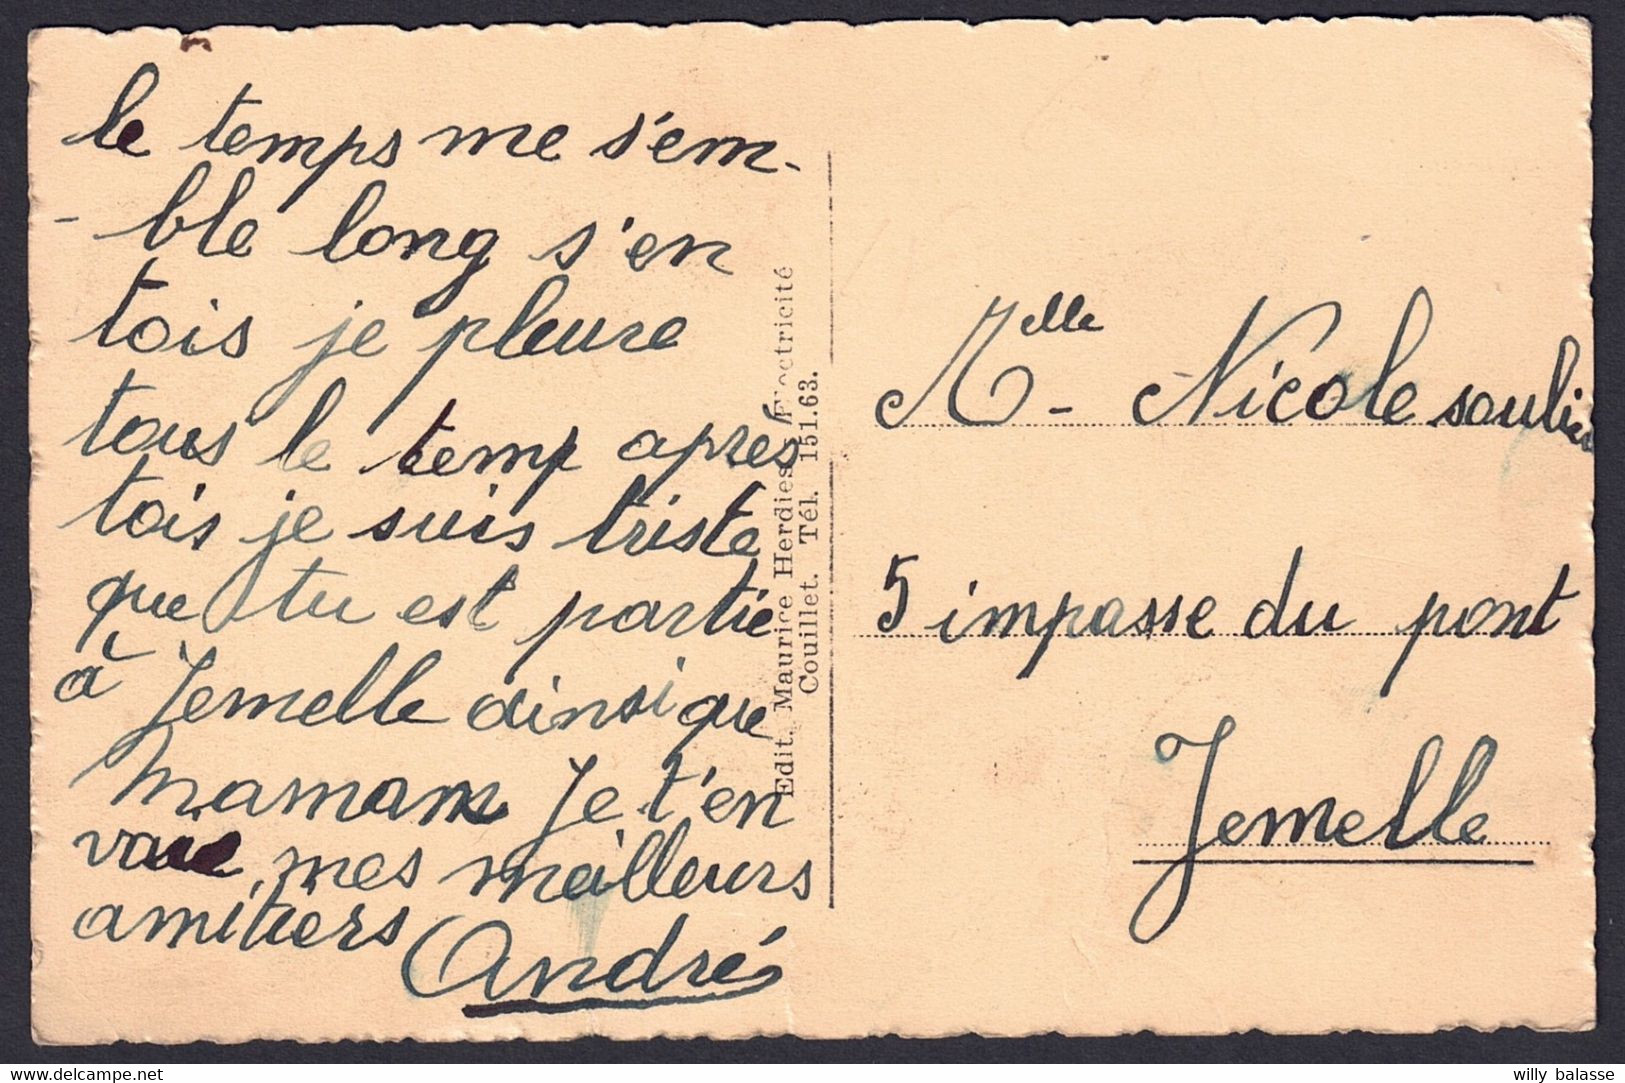 le temps me s'em-
-ble long s'en
tois je pleure
tous le temp apres
tois je suis triste
que tu est partie
à Jemelle ainsi que
Maman Je t'en
vaie mes meilleurs
amitiers
André
Edit. Maurice Herdies Electricité
Couillet. Tél. 151.63.
Melle - Nicole
5 impasse du pont
Jemelle
willy balasse